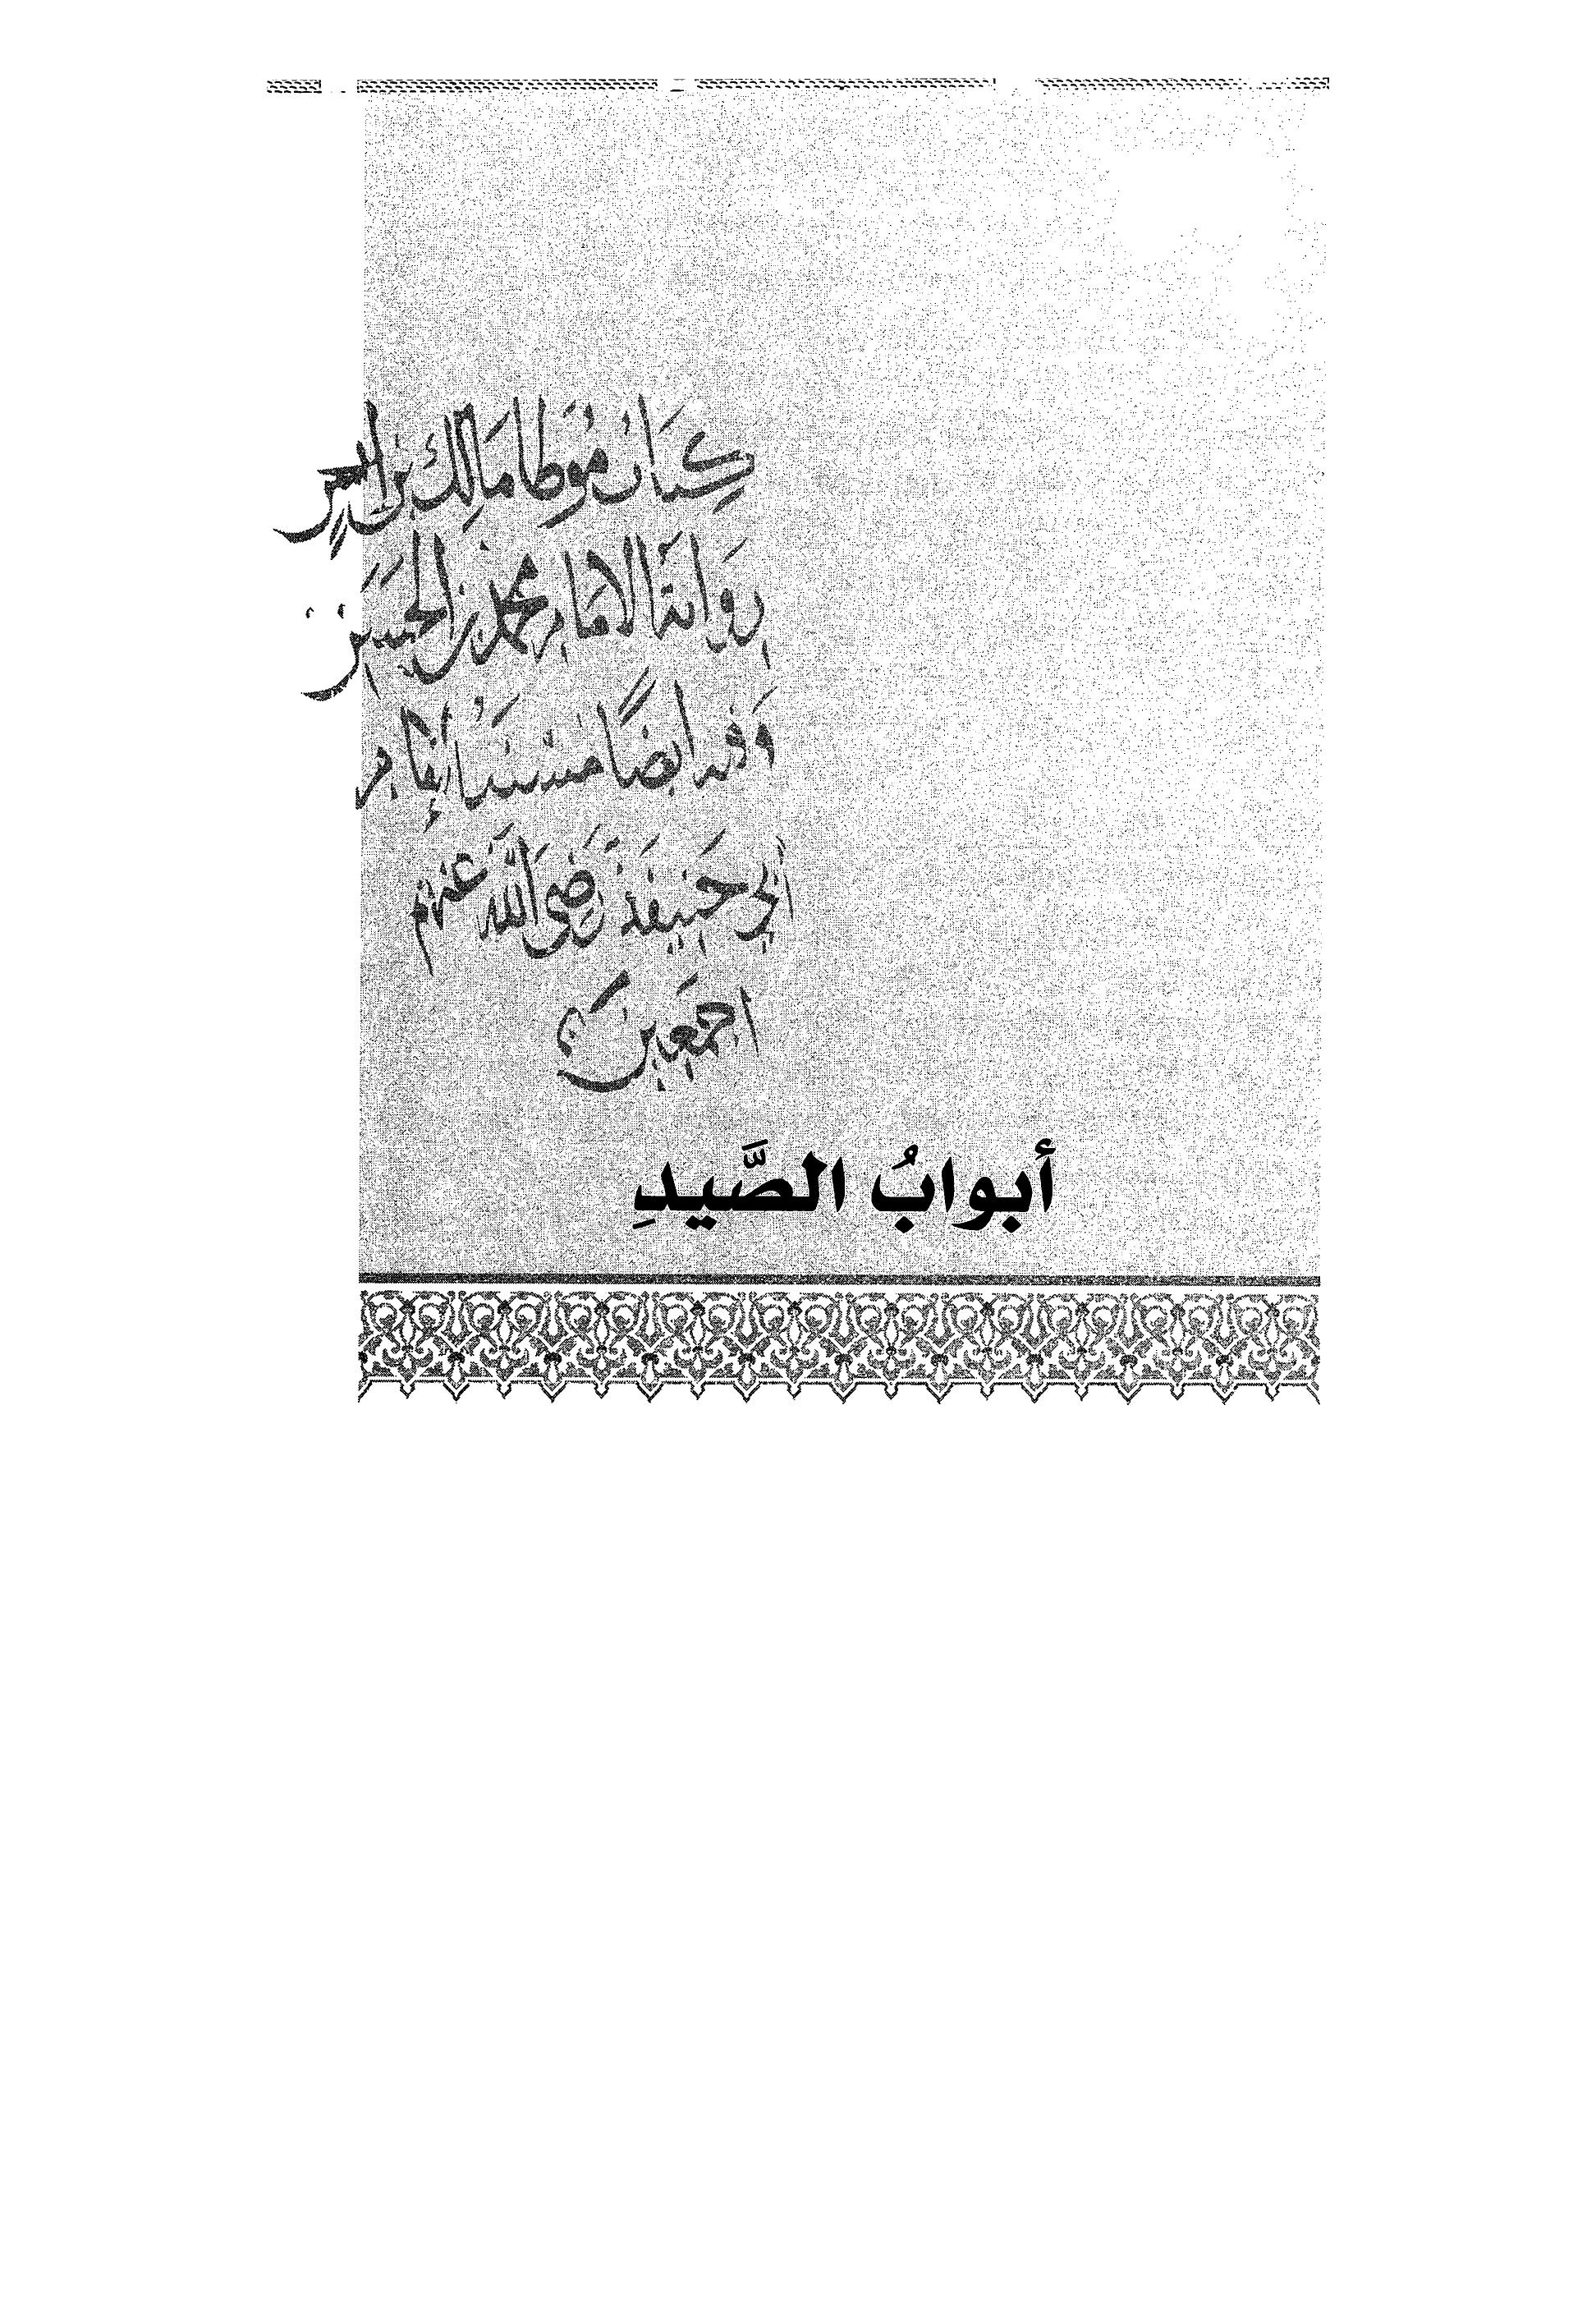 كتاب موطا مالك بن
رواية الامام محمد بن الحسن
وفيه ايضًا مسند الإمام
أبي حنيفة رضي الله عنهم
اجمعين
أبوابُ الصَّيدِ